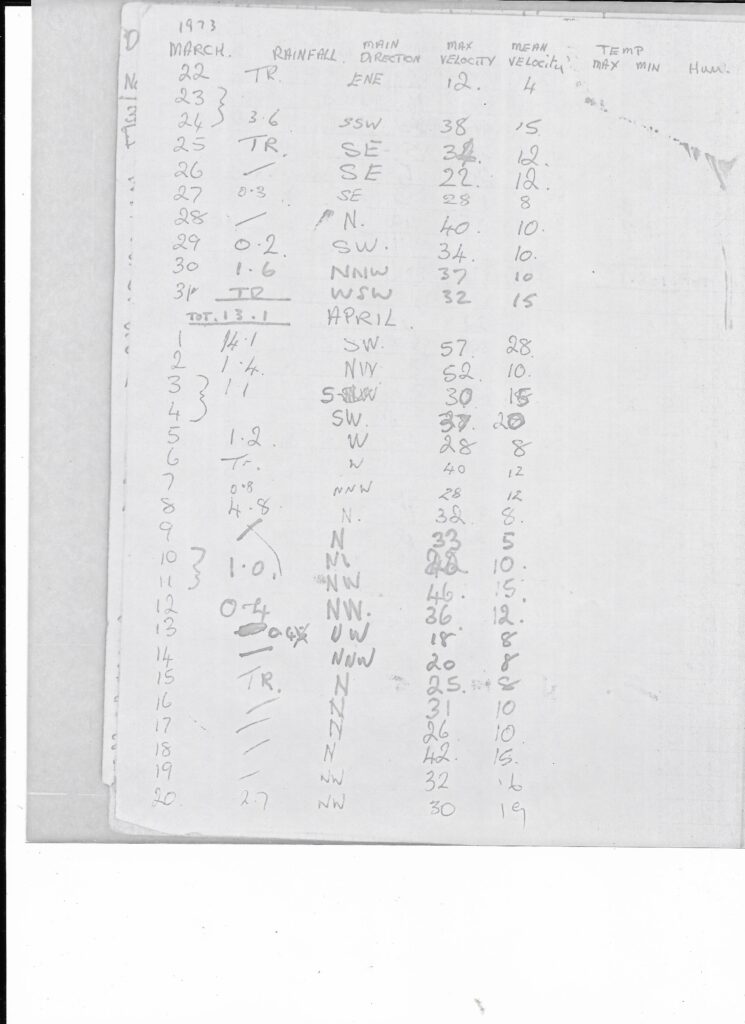 1973
MARCH. RAINFALL. MAIN DIRECTION MAX VELOCITY MEAN VELOCITY TEMP MAX MIN Hum.
22 TR. ENE 12. 4
23 }
24 } 3.6 SSW 38 15
25 TR. SE 12.
26 — SE 22. 12.
27 0.3 SE 28 8
28 — N. 40. 10.
29 0.2 SW. 34. 10.
30 1.6 NNW 37 10
31 TR WSW 32 15
TOT. 13.1 APRIL
1 14.1 SW. 57 28
2 1.4. NW 52. 10.
3 } 1.1 30 15
4 } SW. 37. 20
5 1.2 W 28 8
6 Tr. W 40 12
7 0.8 NNW 28 12
8 4.8 N. 32 8.
9 — N 33 5
10 } 1.0. 10.
11 } NW 46. 15.
12 0.4 NW. 36 12.
13 NW 18 8
14 — NNW 20 8
15 TR. N 25. 8
16 — N 31 10
17 — N 26. 10.
18 — N 42. 15.
19 — NW 32
20. 2.7 NW 30 19